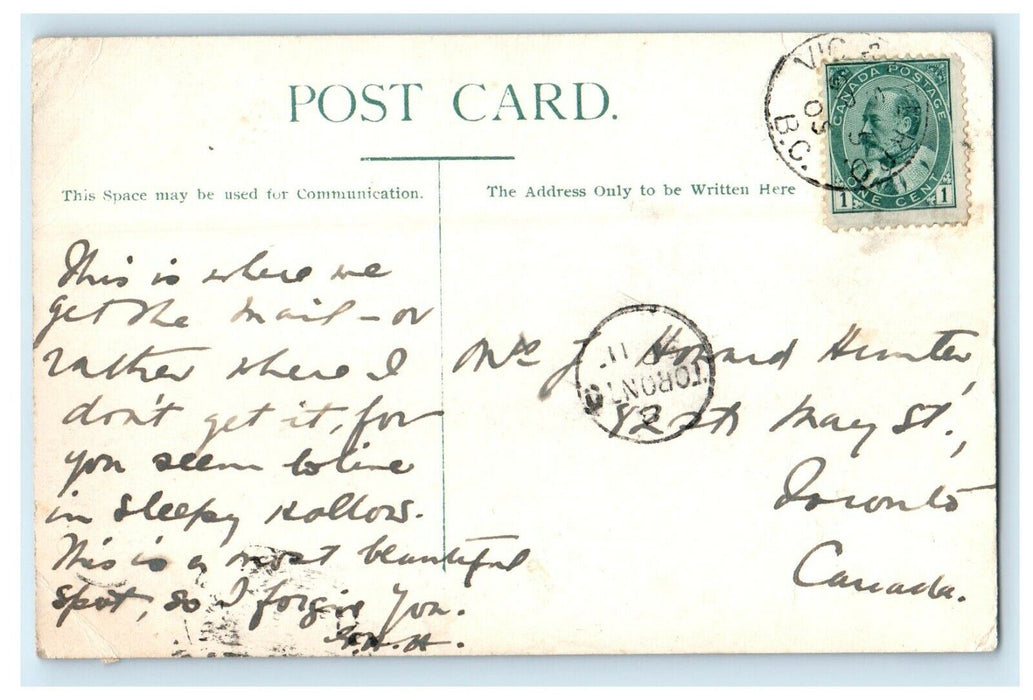 POST CARD.
This Space may be used for Communication.
The Address Only to be Written Here
CANADA POSTAGE
1 ONE CENT 1
VIC
B.C.
05
TORONTO
This is where we
get the mail – or
rather where I
don't get it, for
you seem to live
in Sleepy Hollow.
This is a most beautiful
spot, so I forgive you.
H.H.
J. Howard Hunter,
May St.,
Toronto
Canada.